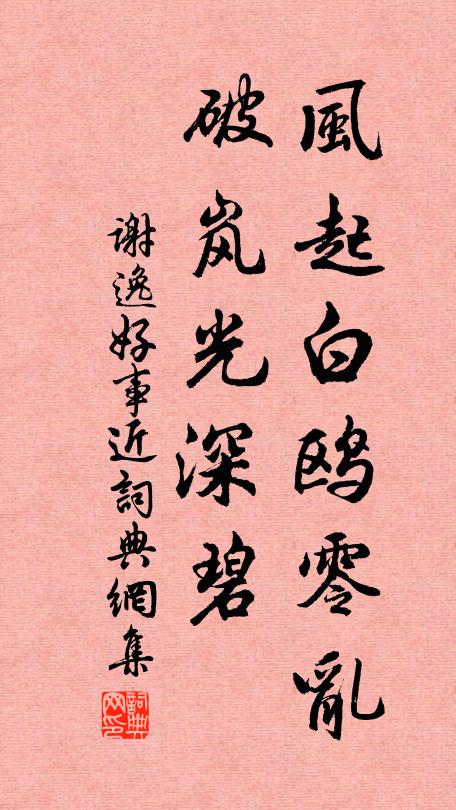 風起白鸥零亂
破岚光深碧
謝逸好事近詞典網集
詞典网印